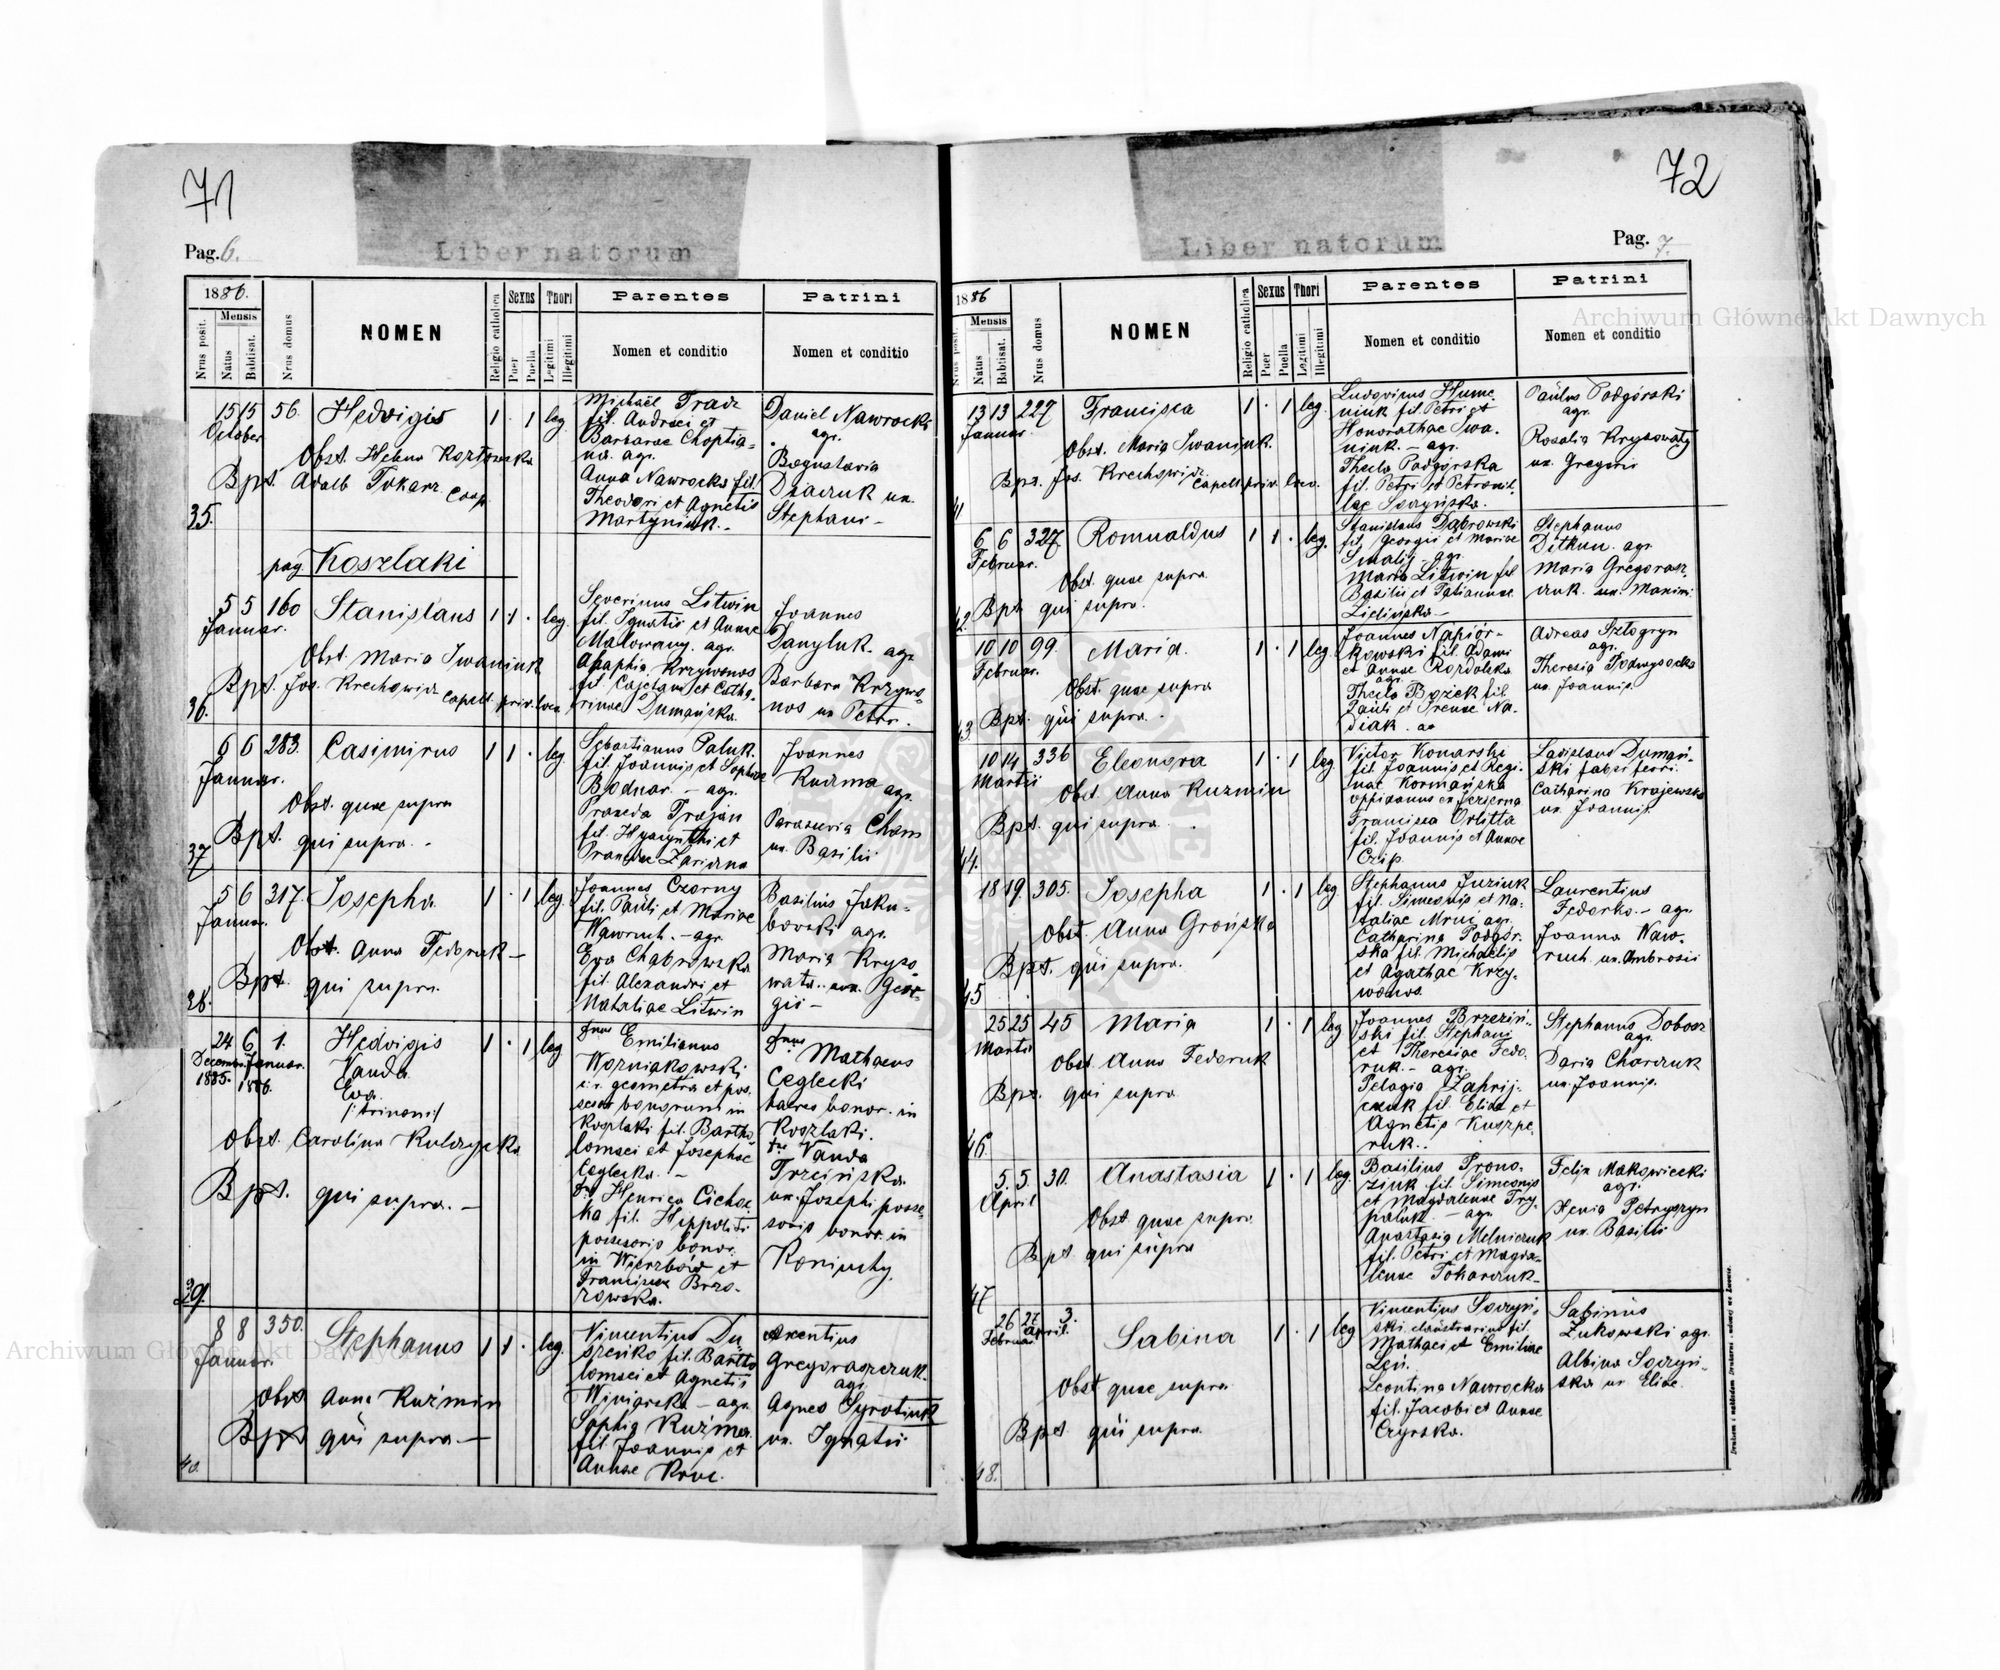 71
Pag. 6.
Liber natorum
1886.
Nrus posit.
Mensis
Natus
Babtisat.
Nrus domus
NOMEN
Religio catholica
Sexus
Puer
Puella
Thori
Legitimi
Illegitimi
Parentes
Nomen et conditio
Patrini
Nomen et conditio
35.
15 15 56. Hedvigis 1 . 1 leg.
October
Obst. Helena Kozłowska
Bpt. Adalb Tokarz Coop.
Michael Tracz
fil. Andreei et
Barbarae Choptia-
na. agr.
Anna Nawrocka fil.
Theodori et Agnetis
Martyniuk.-
Daniel Nawrocki
agr.
Bogustavia
Diaczuk ux.
Stephani-
pag Koszlaki
36.
5 5 160 Stanislaus 1 1 . leg.
Januar.
Obst. Maria Iwaniuk
Bpt. Jos. Krechowicz capell. priv. loco.
Severinus Litwin
fil. Ignatii et Annae
Malowany. agr.
Ahaphia Krzywonos
fil. Cajetani et Catha-
rinae Dumańska.
Joannes
Danyluk. agr
Barbara Krzywo-
nos ux Petri.
37
6 6 283. Casimirus 1 1 . leg.
Januar.
Obst. quae supra
Bpt. qui supra. -
Sebastianus Paluk.
fil. Joannis et Sophiae
Bodnar. - agr.
Praxeda Trojan
fil. Hyacynthi et
Praxedae Zariczna
Joannes
Kuzma agr.
Parascevia Cham
ux. Basilii
28.
5 6 317. Josepha 1 . 1 leg.
Januar.
Obst. Anna Fedoruk -
Bpt. qui supra.
Joannes Czorny
fil. Pauli et Mariae
Wawruch. - agr.
Eva Chabrowska
fil. Alexandri et
Nataliae Litwin
Basilius Jaku-
bowski agr.
Maria Kryso
wata. ux. Geor-
gii -
39.
24 6 1. Hedvigis 1 . 1 leg
Decemb. Januar.
1885. 1886.
Vanda
Eva.
/:trinom:/
Obst. Carolina Kulczycka
Bpt. qui supra. -
Dnus Emilianus
Woźniakowski
c.r. geometra et pos.
sesor bonorum in
Koszlaki fil. Bartho
lomaei et Josephae
Ceglecka. -
Da Henrica Cichoc
ka fil. Hippoliti
possesoris bonor.
in Wierzbów et
Franciscae Brzo-
zowska.
Dnus Mathaeus
Ceglecki
haeres bonor. in
Koszlaki.
Dna Vanda
Trzcińska
ux. Josephi posse-
soris bonor. in
Koniuchy.
40.
8 8 350. Stephanus 1 1 . leg.
Januar.
Obst Anna Kuźmin
Bpt qui supra. -
Vincentius Du
szeńko fil. Bartho
lomaei et Agnetis
Winiarska - agr.
Sophia Kuźma.
fil. Joannis et
Annae Krue.
Arentius
Gregoraszczuk.
agr.
Agnes Syrotiuk
ux. Ignatii
72
Pag. 7.
Liber natorum
1886
Nrus posit.
Mensis
Natus
Babtisat.
Nrus domus
NOMEN
Religio catholica
Sexus
Puer
Puella
Thori
Legitimi
Illegitimi
Parentes
Nomen et conditio
Patrini
Nomen et conditio
13 13 227 Francisca 1 . 1 leg.
Januar.
Obst. Maria Iwaniuk.
Bpt. Jos. Krechowicz capell. priv. loco.
Ludovicus Hume
niuk fil. Petri et
Honorathae Iwa.
niuk. - agr.
Thecla Podgórska
fil. Petri et Petronil.
lae Soczyńska.
Paulus Podgórski
agr.
Rosalia Krysowaty
ux. Gregorii
42.
6 6 327 Romualdus 1 1 . leg.
Februar.
Obst. quae supra.
Bpt. qui supra.
Stanislaus Dąbrowski
fil. Georgii et Mariae
Smalij agr.
Maria Litwin fil
Basilii et Tatiannae
Zielińska -
Stephanus
Ditkun. agr.
Maria Gregorasz.
czuk. ux. Maxim.
43
10 10 99. Maria. 1 . 1 leg
Februar.
Obst. quae supra
Bpt. qui supra.
Joannes Napiór-
kowski fil. Adami
et Annae Czordelska
agr. -
Thecla Bożek fil.
Pauli et Irenae Na-
diak.
Adreas Sztogryn
agr.
Theresia Podwysocka
ux. Joannis.
44.
10 14 336 Eleonora 1 . 1 leg
Martii
Obst. Anna Kuzmin
Bpt. qui supra.
Victor Konarski
fil. Joannis et Regi-
nae Kormańska
oppidanus ex Jezierna
Francisca Orlitta
fil. Joannis et Annae
Czip.
Ladislaus Dumań-
ski fabri ferri.
Catharina Krajewska
ux. Joannis.
45
18 19. 305. Josepha 1 . 1 leg
Obst. Anna Grońska
Bpt. qui supra.
Stephanus Juziuk
fil. Simeonis et Na-
taliae Mruć agr.
Catharina Podgór.
ska fil. Michaelis
et Agathae Krzy-
wonos.
Laurentius
Fedorko. - agr.
Joanna Waw-
ruch ux. Ambrosii
46.
25 25 45 Maria 1 . 1 leg
Martii
Obst. Anna Fedoruk
Bpt. qui supra
Joannes Brzeziń-
ski fil. Stephani
et Theresiae Fedo-
ruk. - agr.
Pelagia Zahrij-
czuk fil. Eliae et
Agnetis Kuszpe-
ruk..
Stephanus Dobosz
agr.
Daria Charczuk
ux. Joannis.
47
5. 5. 30. Anastasia 1 . 1 leg.
April
Obst quae supra
Bpt qui supra
Basilius Prono-
ziuk fil. Simeonis
et Magdalenae Try-
paluk. - agr.
Anastasia Melniczuk
fil. Petri et Magda-
lenae Tokarczuk-
Felix Makowiecki
agr.
Xenia Petryszyn
ux. Basilii
48.
26 27 3. Sabina 1 . 1 leg
Februar. April.
Obst quae supra
Bpt qui supra.
Vincentius Soczyń-
ski. claustrarius fil.
Mathaei et Emiliae
Leń.
Leontina Nawrocka
fil. Jacobi et Annae
Czyrska.
Sabinus
Żukowski agr.
Albina Soczyń-
ska ux. Eliae.
Archiwum Główne Akt Dawnych
Archiwum Główne Akt Dawnych